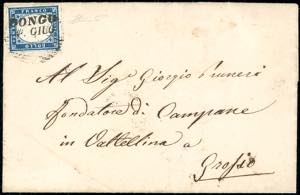 FRANCO
DONGO
GIUG
BOLLO
Al Sig.r Giorgio Pruneri
fondatore di Campane
in Valtellina a
Grosio